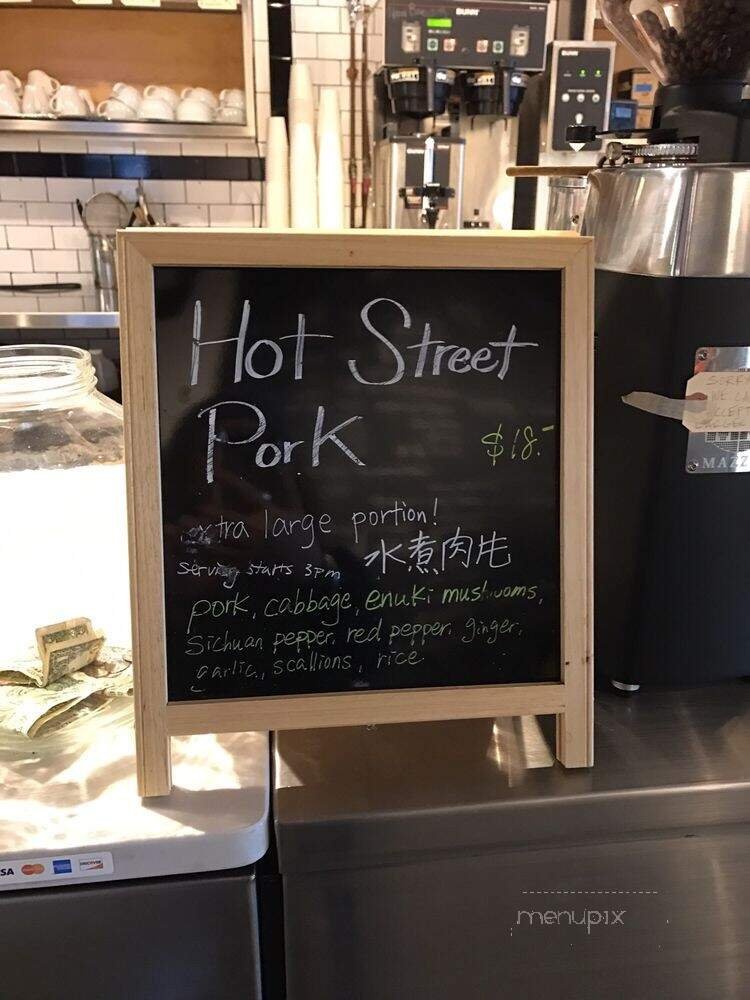 BUNN
BUNN
BUNN
Hot Street
Pork
$18.-
extra large portion!
Serving starts 3pm
水煮肉片
pork, cabbage, enuki mushrooms,
Sichuan pepper, red pepper, ginger,
garlic, scallions, rice
SORRY
MAZZ
SA
DISCOVER
menupix